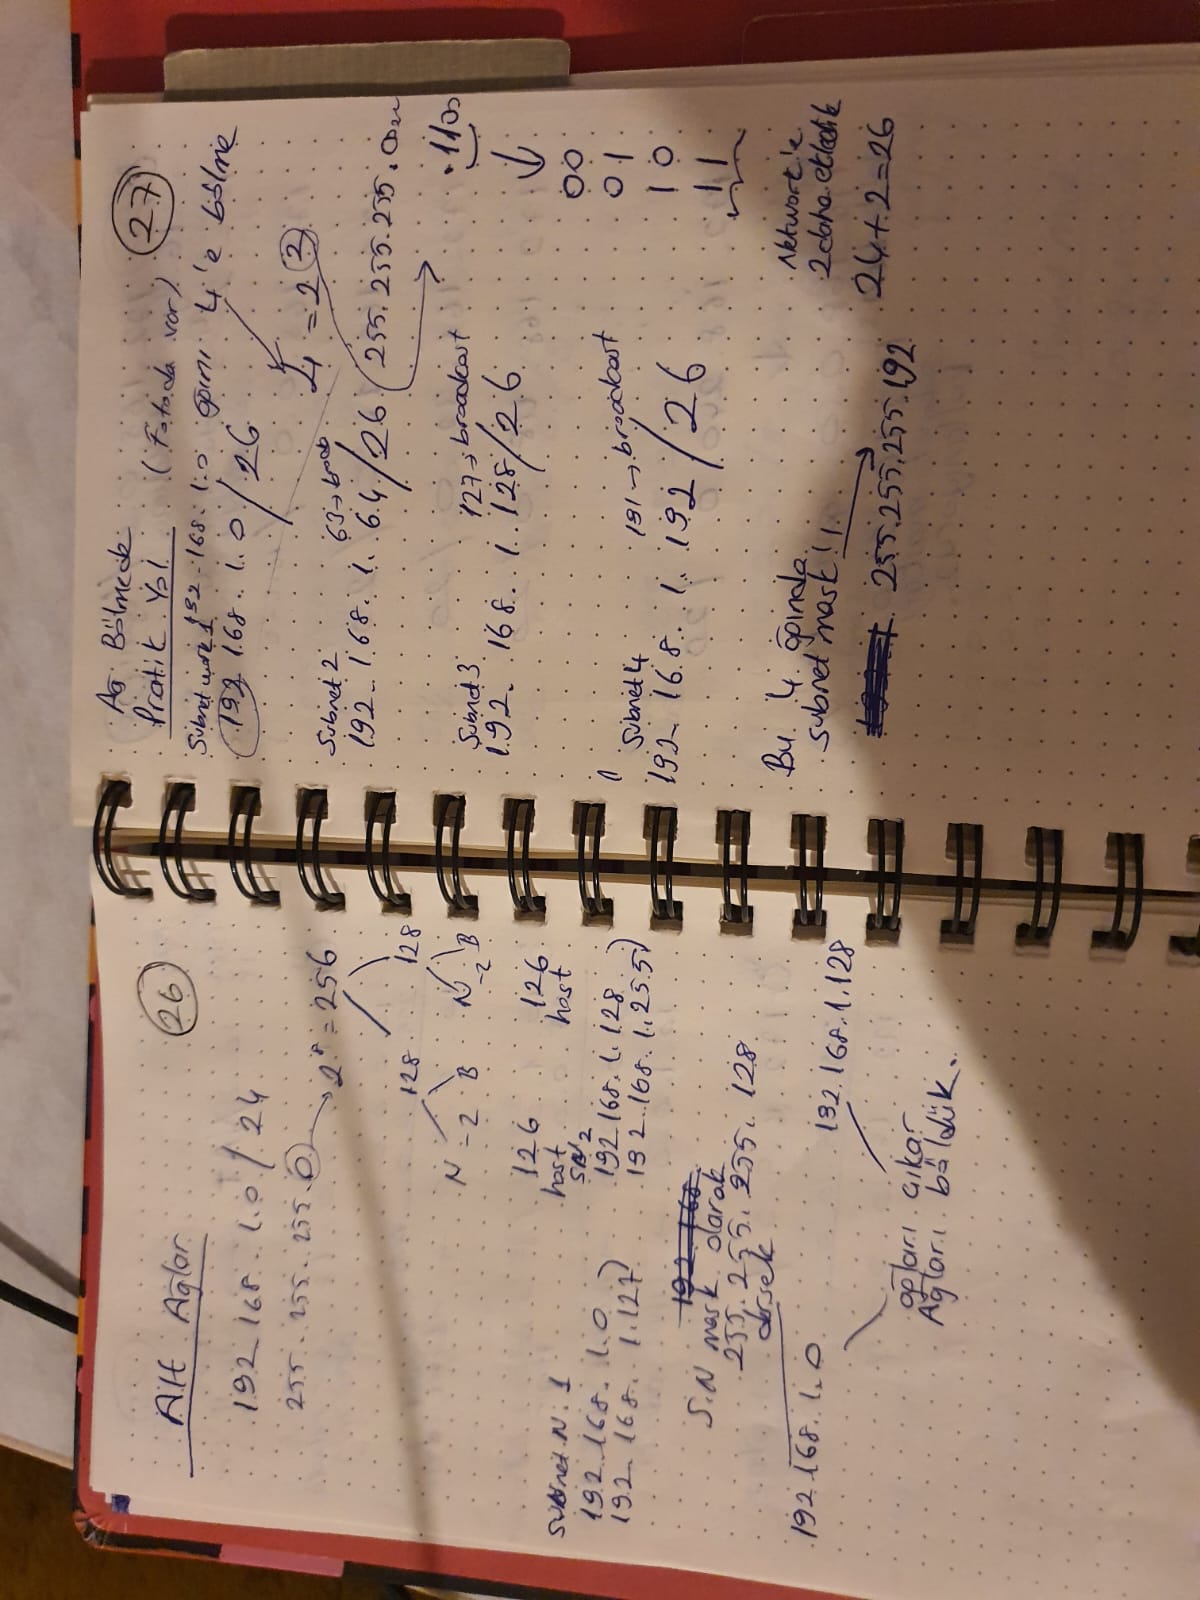 Alt Ağlar
26
192.168.1.0/24
255.255.255.0
2⁸ = 256
128 128
N -2 B N -2 B
126 126
host host
Subnet N. 1
SN 2
192.168.1.0 192.168.1.128
192.168.1.127 192.168.1.255
S.N mask olarak
255.255.255.128
dersek
192.168.1.0
192.168.1.128
ağları çıkar
Ağları böldük.
Ağ Bölmede
27
Pratik Yol (Fotoda var)
Subnetwork 1 192.168.1.0 ağını 4'e bölme
192.168.1.0/26
4 = 2²
Subnet 2 63→broad
192.168.1.64/26 255.255.255.
.1100
Subnet 3 127→broadcast
192.168.1.128/26
00
01
Subnet 4 191→broadcast
10
192.168.1.192/26
11
Bu 4 ağında
subnet mask!
255.255.255.192
Network'e
2 daha ekledik
24+2=26